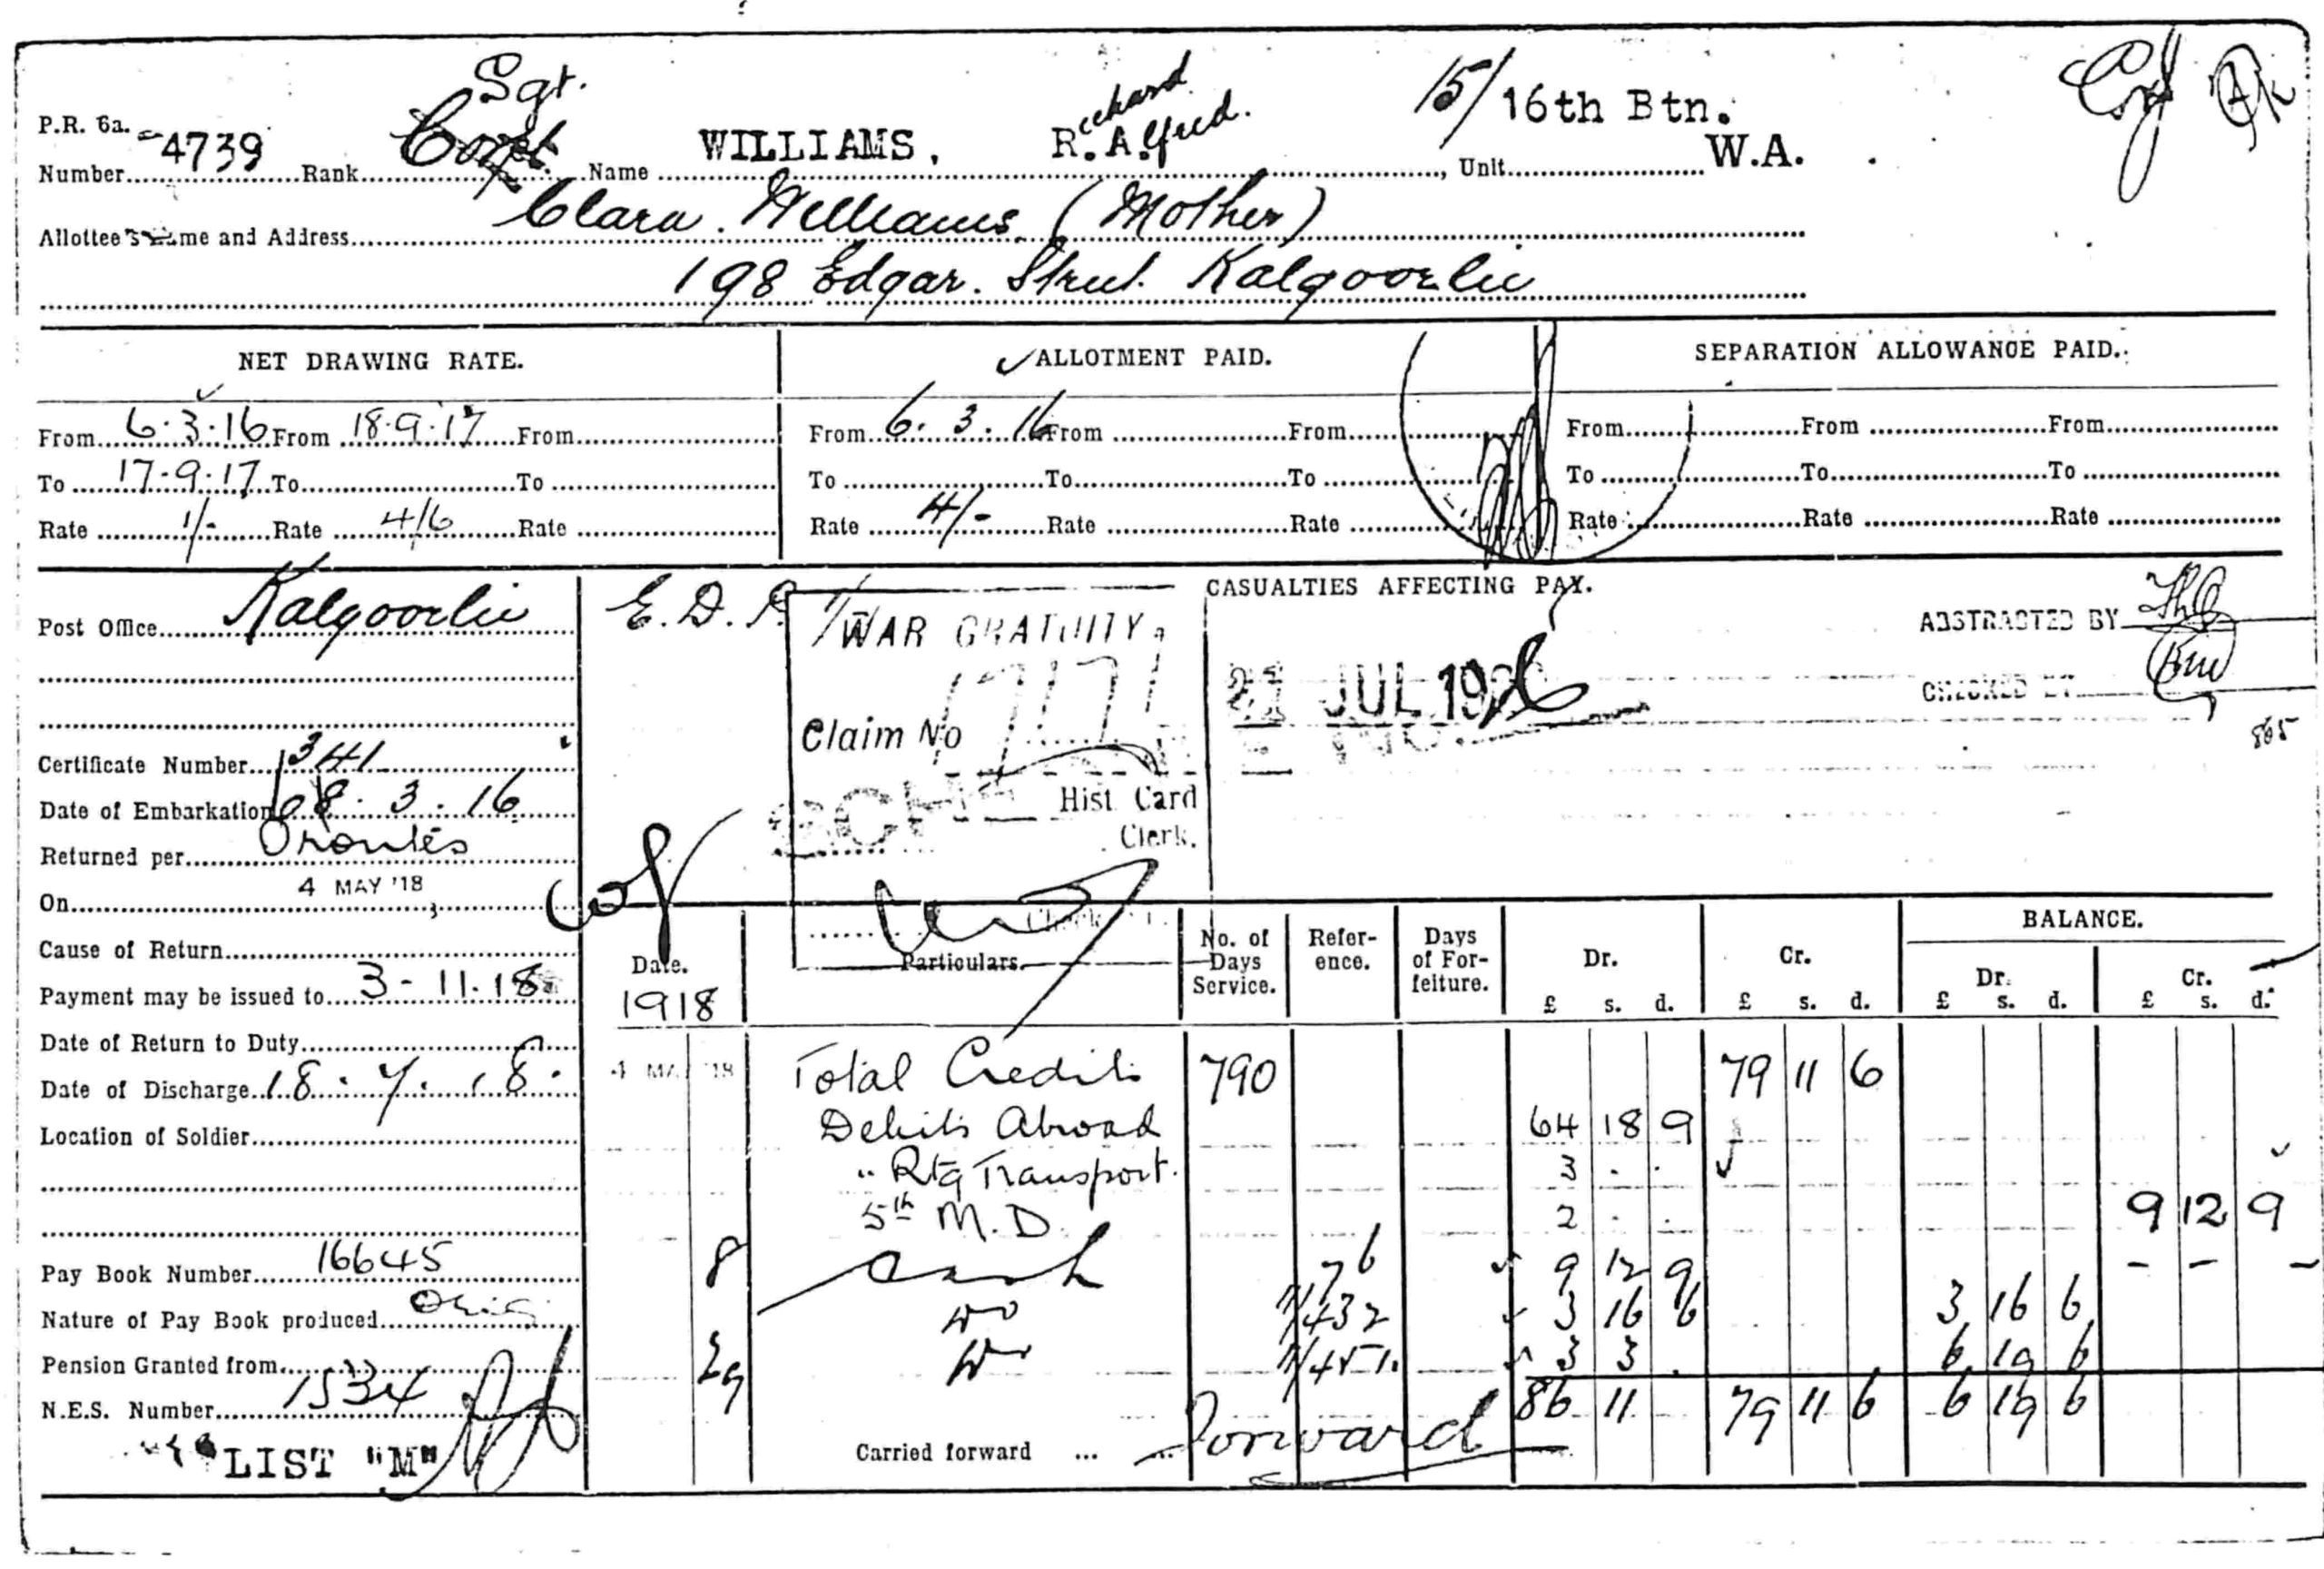 Sgt.
P.R. 6a.
Number 4739 Rank Corpl. Name WILLIAMS, R.ichard A.lfred. , Unit 15/16th Btn. W.A.
Allottee's Name and Address Clara. Williams (Mother)
198 Edgar. Street. Kalgoorlie
NET DRAWING RATE. ALLOTMENT PAID. SEPARATION ALLOWANCE PAID.
From 6.3.16 From 18.9.17 From From 6.3.16 From From From From From
To 17.9.17 To To To To To To To To
Rate 1/- Rate 4/6 Rate Rate 4/- Rate Rate Rate Rate Rate
Post Office Kalgoorlie
E.D.P.
WAR GRATUITY
Claim No
Hist. Card
Clerk.
CASUALTIES AFFECTING PAY.
JUL
ABSTRACTED BY
CHECKED BY
Certificate Number 1341
Date of Embarkation 3.16
Returned per Orontes
On 4 MAY '18
Cause of Return
Payment may be issued to 3-11.18
Date of Return to Duty
Date of Discharge 18.7.18.
Location of Soldier
Pay Book Number 16645
Nature of Pay Book produced Orig
Pension Granted from
N.E.S. Number 1534
LIST "M"
Date. Particulars. No. of Days Service. Reference. Days of Forfeiture. Dr. Cr. BALANCE.
Dr. Cr.
£ s. d. £ s. d. £ s. d. £ s. d.
1918
4 MAY '18 Total Credits 790 79 11 6
Debits Abroad 64 18 9
" Rtg Transport. 3 . .
5th M.D. 2 . . 9 12 9
8 Cash 9 12 9 - - -
Do 3 16 6 3 16 6
29 Do 3 3 . 6 19 6
86 11 - 79 11 6 6 19 6
Carried forward ... ... Forward